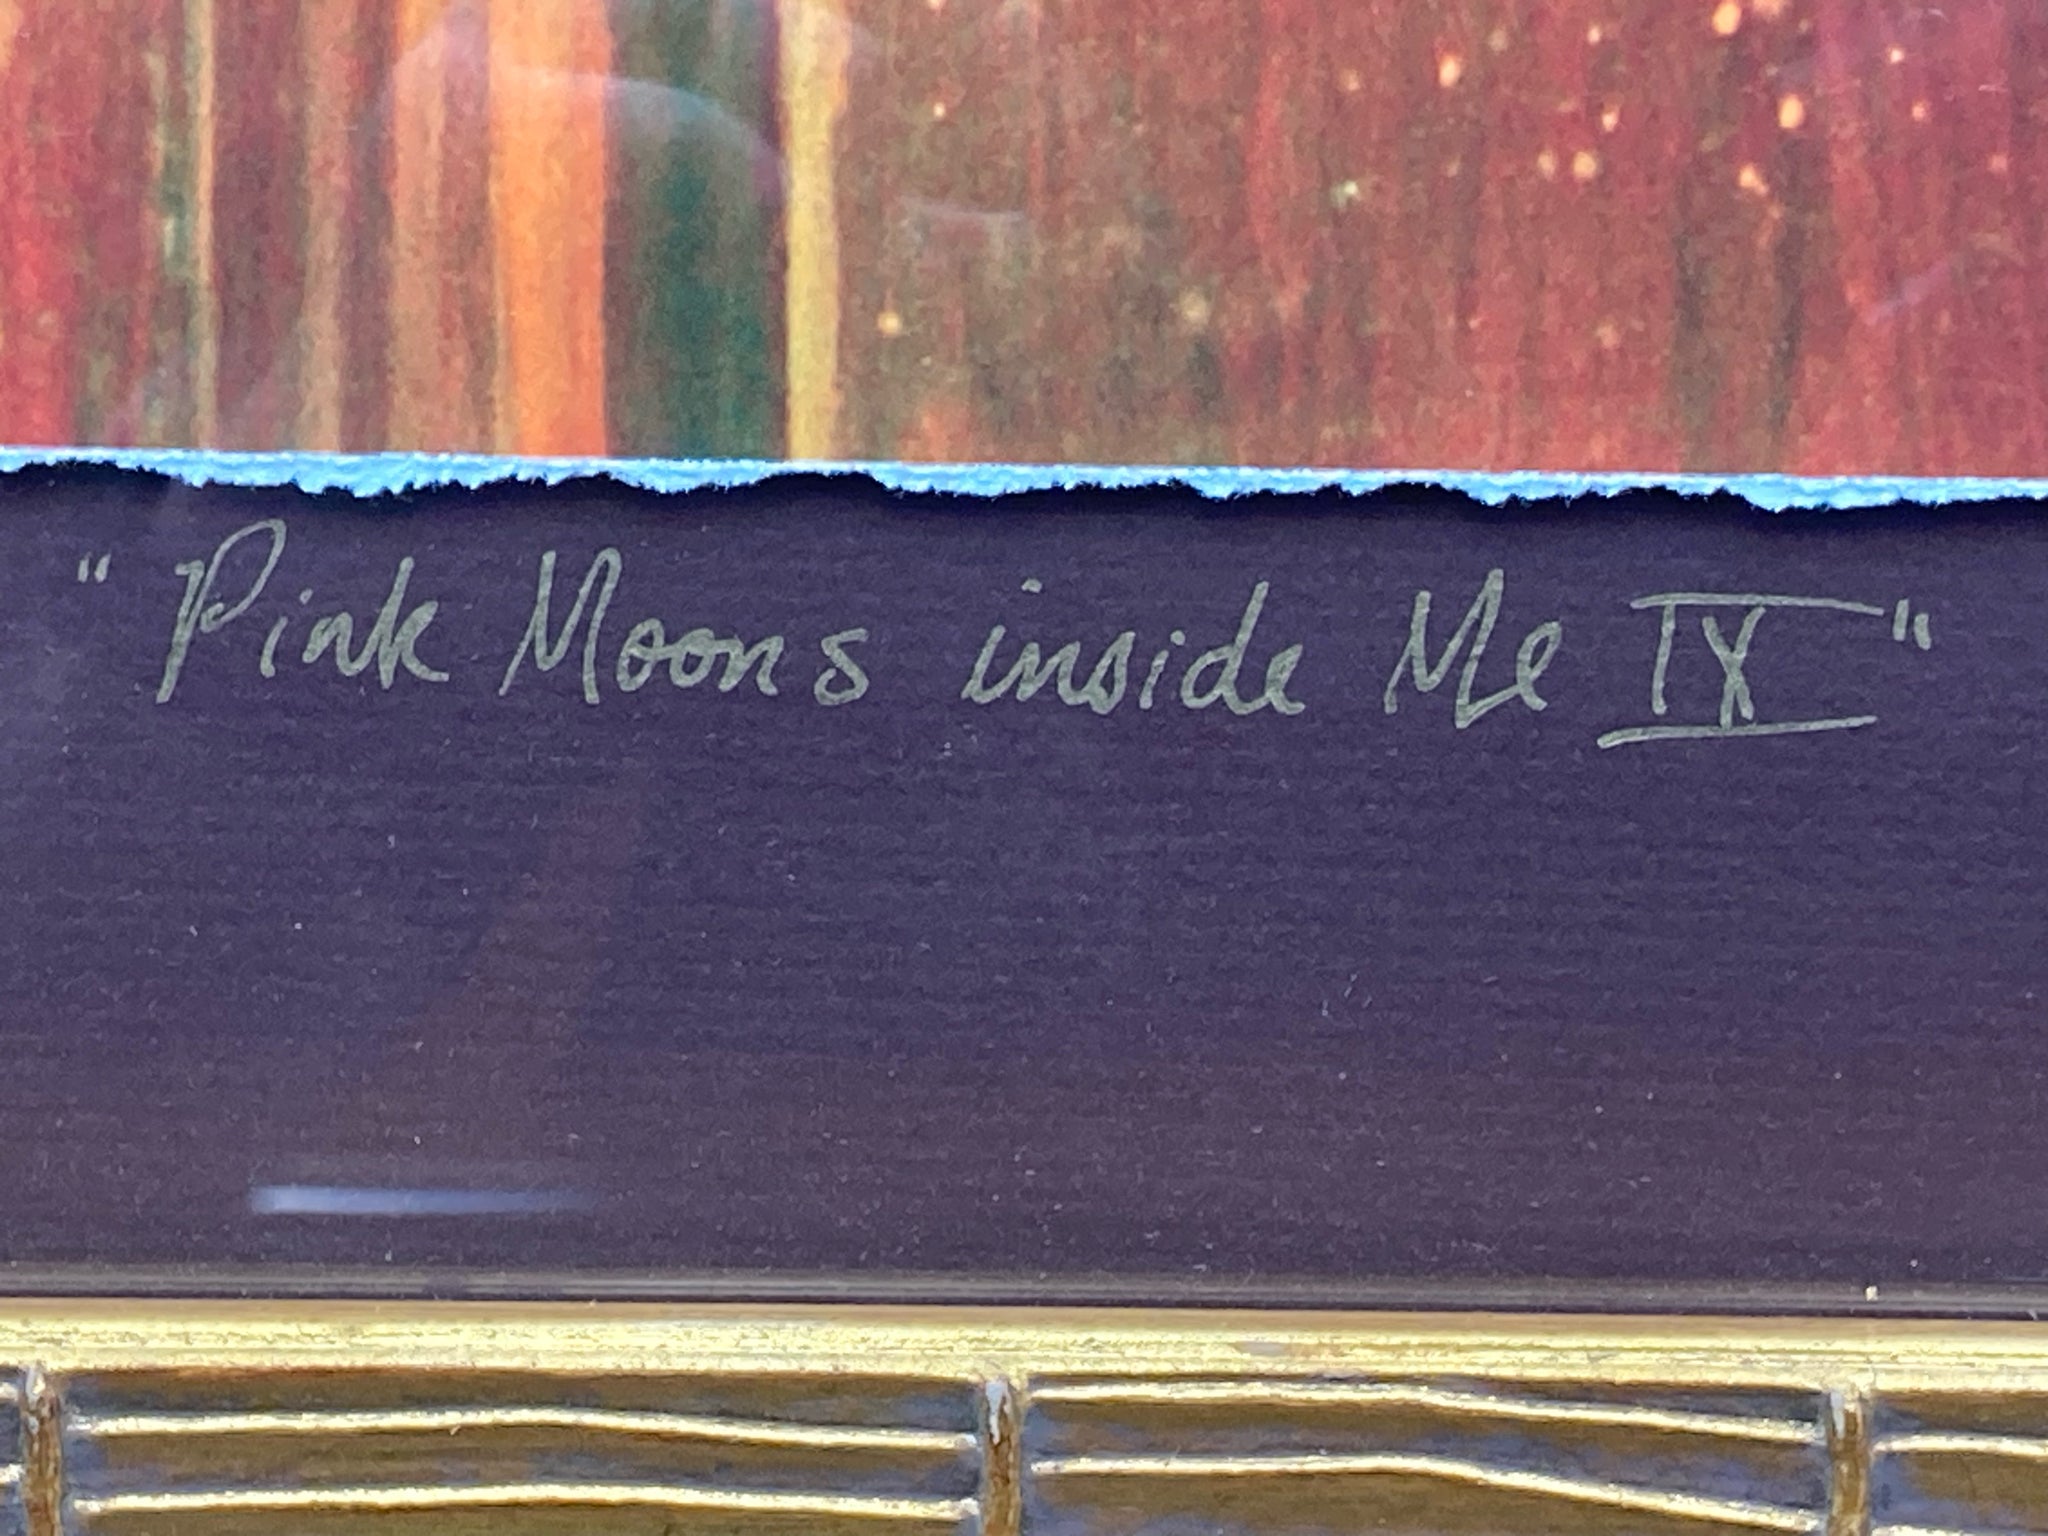 "Pink Moons inside Me IX"